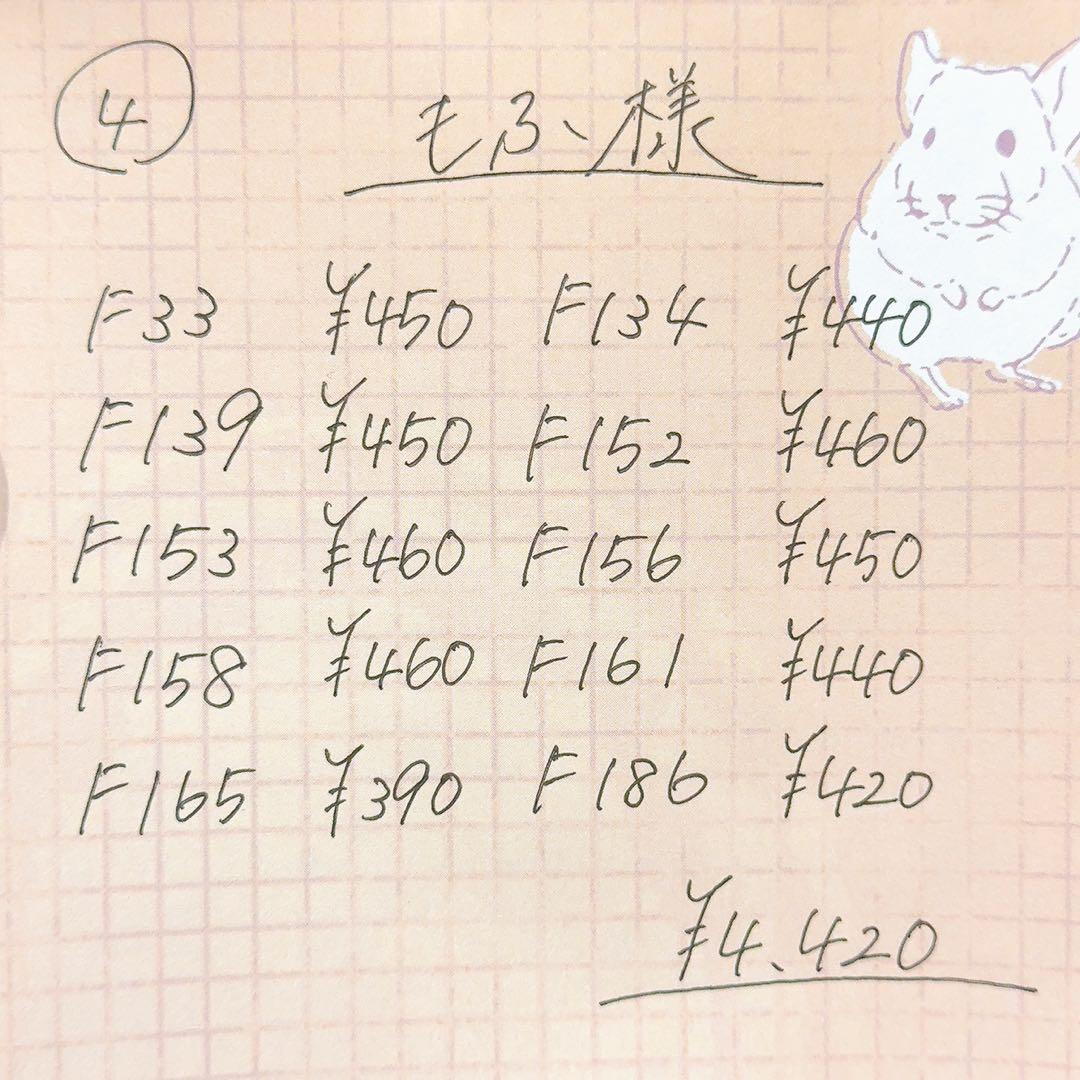 ④ もふ様
F33 ¥450 F134 ¥440
F139 ¥450 F152 ¥460
F153 ¥460 F156 ¥450
F158 ¥460 F161 ¥440
F165 ¥390 F186 ¥420
¥4、420